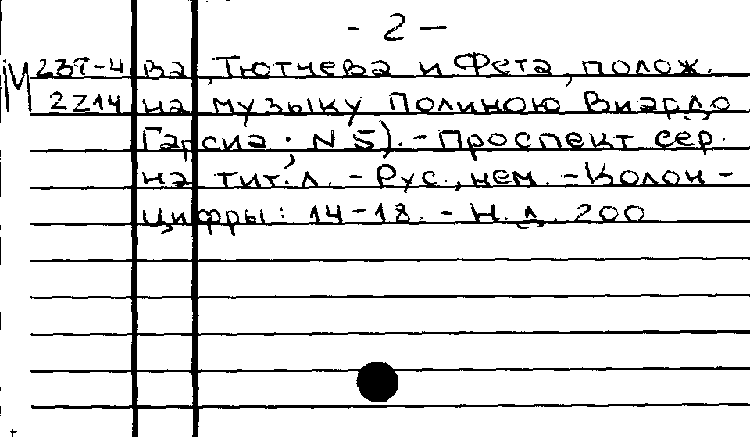 - 2 -
М 237-4 ва, Тютчева и Фета, полож.
2214 на музыку Полиною Виардо
Гарсиа; N 5). - Проспект сер.
на тит. л. - Рус., нем. - Колон-
цифры: 14-18. - Н. д. 200